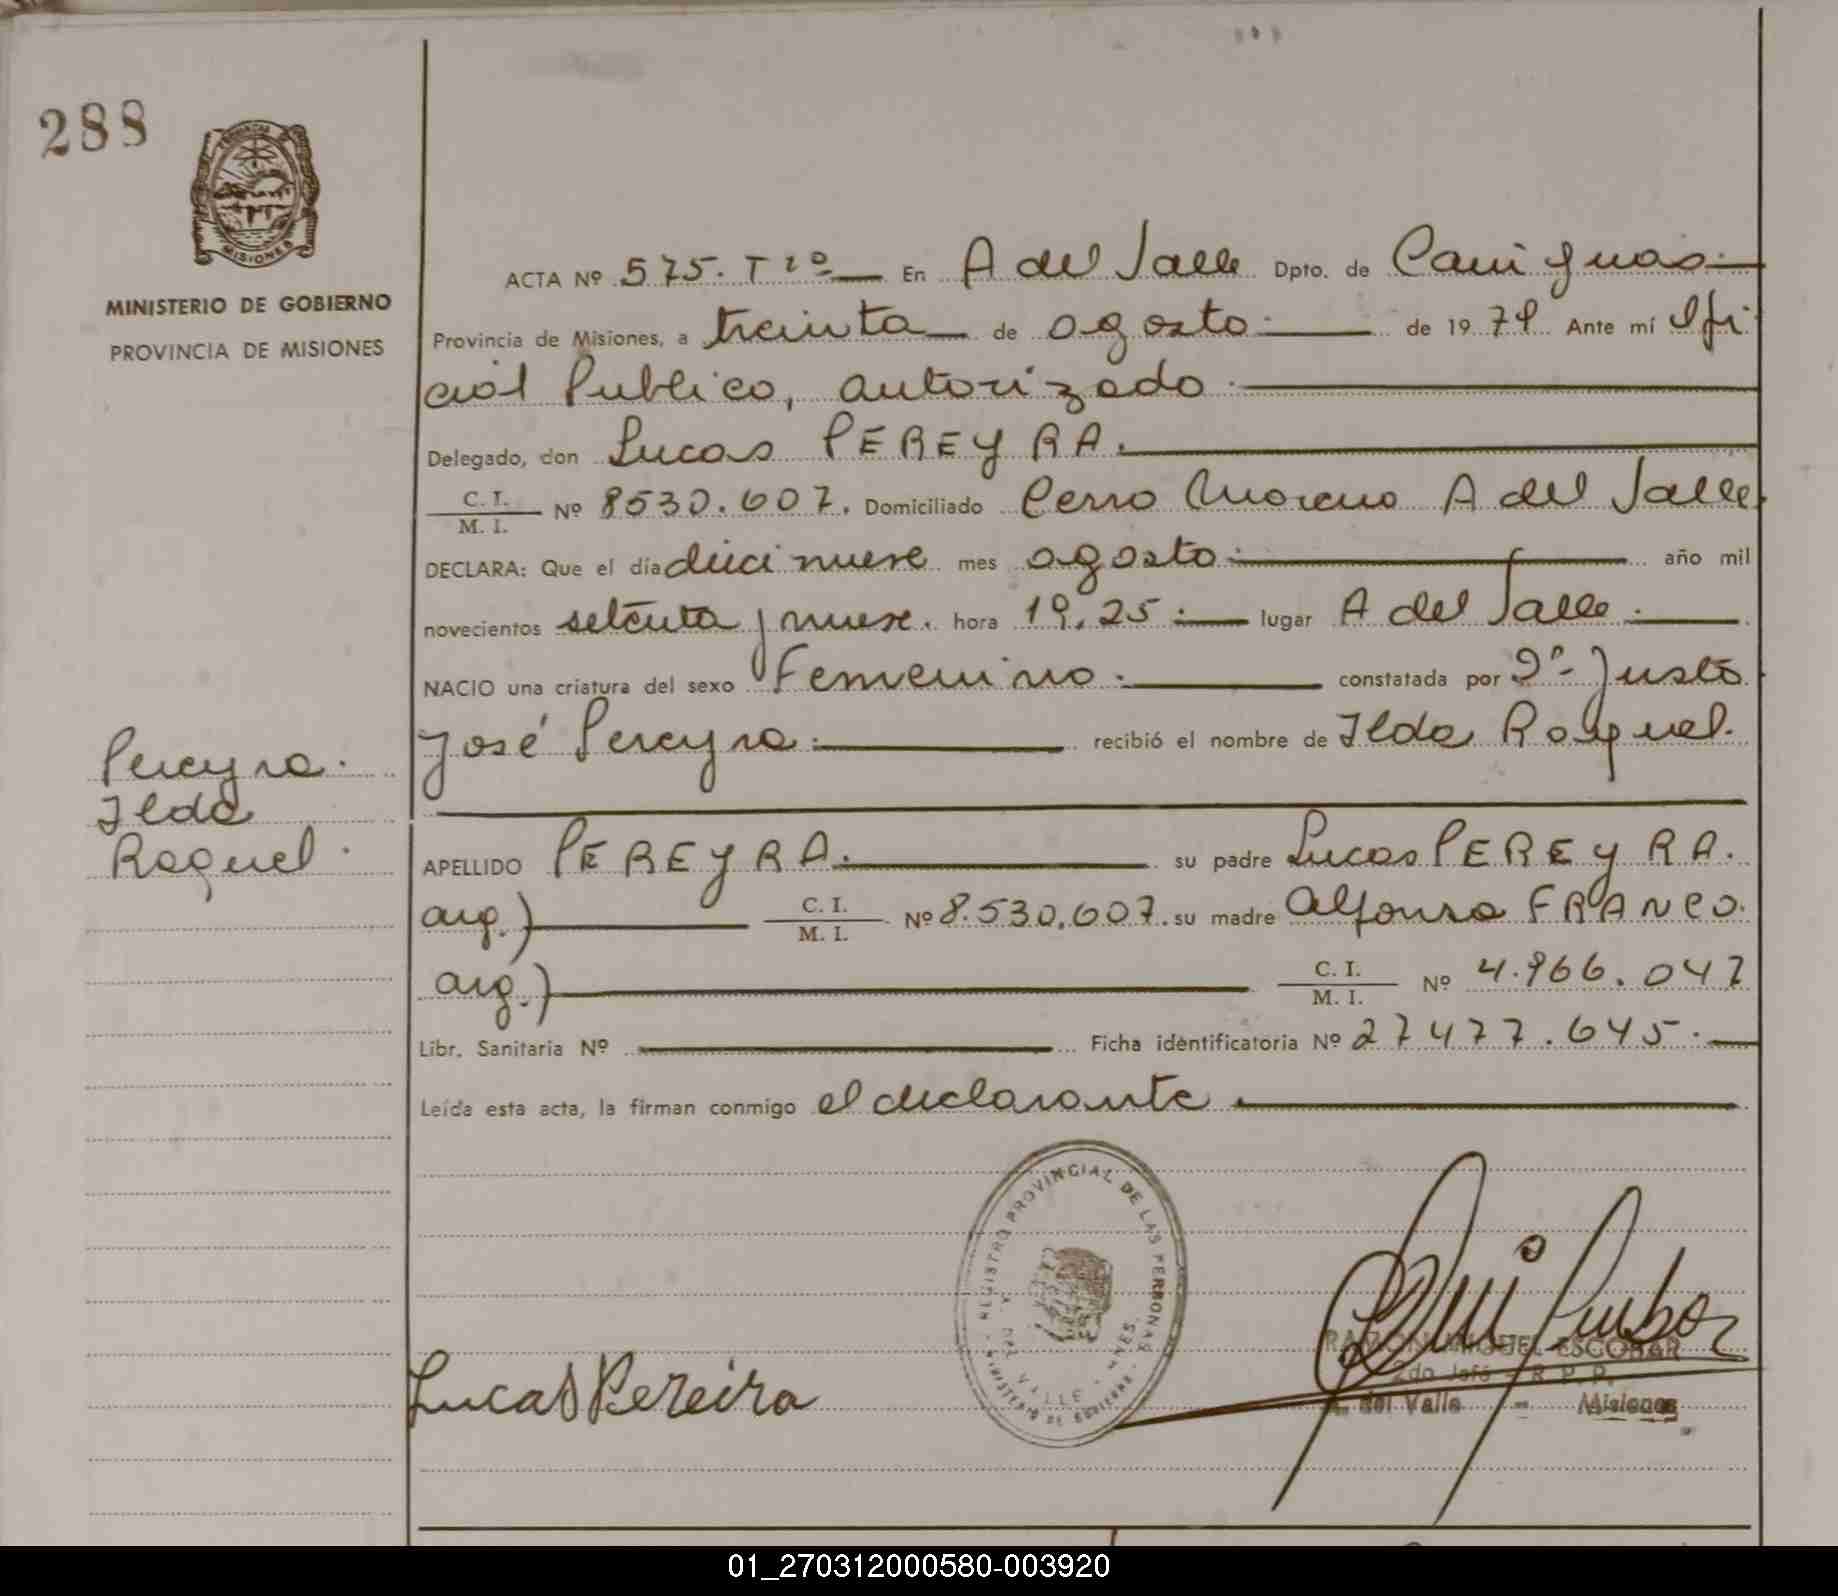 288
MISIONES
MINISTERIO DE GOBIERNO
PROVINCIA DE MISIONES
ACTA Nº 575. T 2º En A del Valle Dpto. de Cainguás
Provincia de Misiones, a treinta de agosto de 1979 Ante mí Ofi
cial Publico, autorizado
Delegado, don Lucas PEREYRA.
C. I.
M. I. Nº 8530.607. Domiciliado Cerro Moreno A del Valle
DECLARA: Que el día diecinueve mes agosto año mil
novecientos setenta y nueve. hora 19.25 lugar A del Valle
NACIO una criatura del sexo Femenino constatada por Dº Justo
José Pereyra recibió el nombre de Ilda Raquel.
Pereyra.
Ilda
Raquel.
APELLIDO PEREYRA. su padre Lucas PEREYRA.
arg.) C. I.
M. I. Nº 8.530.607. su madre Alfonsa FRANCO.
arg.) C. I.
M. I. Nº 4.966.047
Libr. Sanitaria Nº Ficha identificatoria Nº 27477.645.
Leída esta acta, la firman conmigo el declarante
REGISTRO PROVINCIAL DE LAS PERSONAS
A. DEL VALLE - MNES.
MINISTERIO DE GOBIERNO
RAMON MIGUEL ESCOBAR
2do Jefe - R. P. P.
A. del Valle - Misiones
Lucas Pereira
01_270312000580-003920